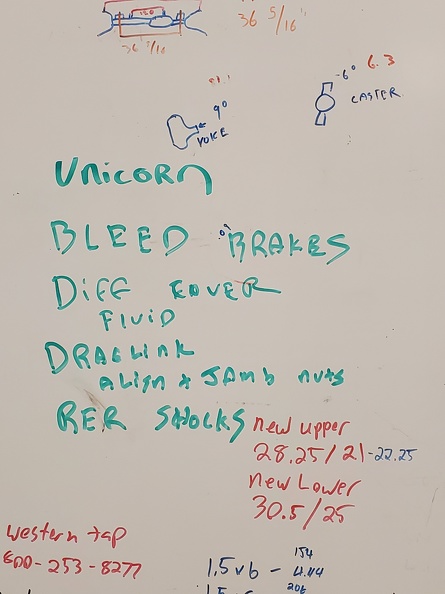 36 5/16"
36 7/16
-6° 6.3
CASTER
9°
YOKE
Unicorn
BLEED BRAKES
Diff COVER
FluiD
DRAGLINK
Align & JAMb nuts
RER SHOCKS
new upper
28.25/21-22.25
new Lower
30.5/25
western tap
800-253-8277
154
1.5 v 6 - 4.44
206